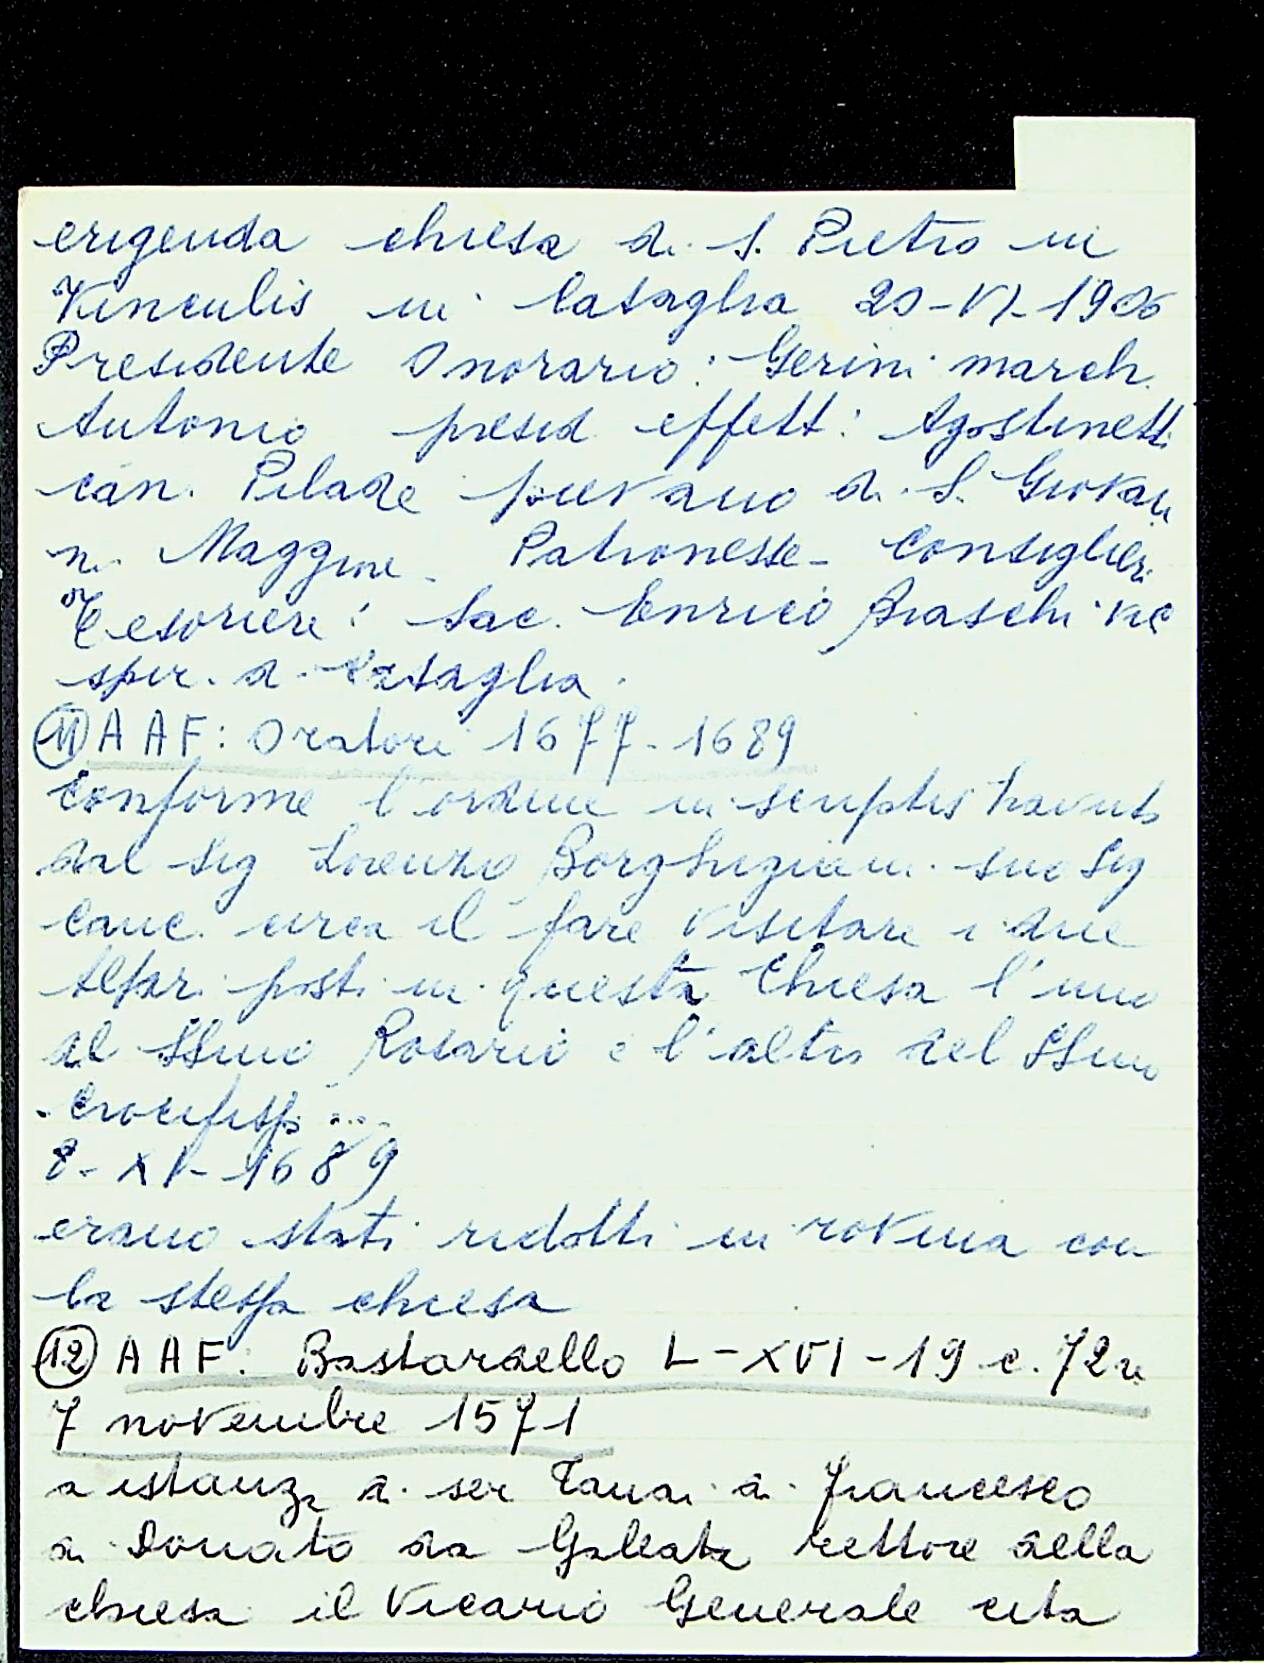 erigenda chiesa di S. Pietro in
Vinculis in Casaglia 20-VI-1906
Presidente Onorario: Gerini march.
Antonio presid. effett: Agostinetti
can. Pilade pievano di S. Giovan
ni Maggiore. Patronesse - Consiglieri
Tesoriere: Sac. Enrico Braschi vic
spir. di Casaglia.
(11) AAF: Oratori 1677-1689
Conforme l'ordine in scriptis havuto
dal Sig Lorenzo Borghigiani suo Sig
Canc. circa il fare visitare i due
Altari posti in questa Chiesa l'uno
al SSmo Rosario e l'altro del SSmo
Crocifisso ...
8-XI-1689
erano stati ridotti in rovina con
la stessa chiesa
(12) AAF. Bastardello L-XVI-19 c. 72
7 novembre 1571
a istanza di ser di Francesco
di Donato da Galeata rettore della
chiesa il Vicario Generale cita